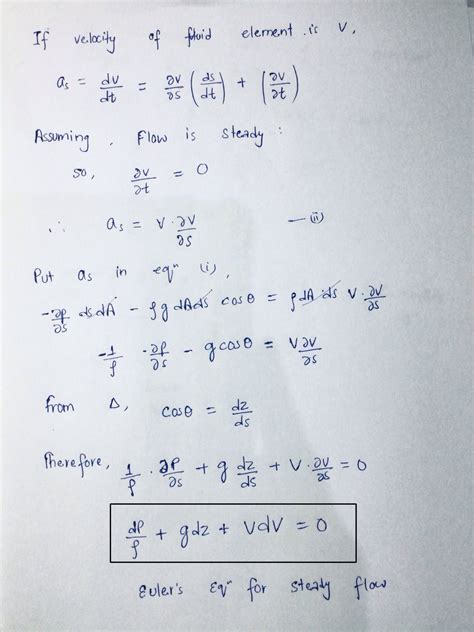 If velocity of fluid element is V,
as = dv/dt = ∂v/∂s (ds/dt) + (∂v/∂t)
Assuming, Flow is steady:
so, ∂v/∂t = 0
∴ as = V·∂v/∂s — (ii)
Put as in eqⁿ (i),
-∂p/∂s ds dA - ρg dA ds cosθ = ρ dA ds V·∂v/∂s
-1/ρ · ∂p/∂s - g cosθ = V∂v/∂s
from Δ, cosθ = dz/ds
Therefore, 1/ρ · ∂P/∂s + g dz/ds + V·∂v/∂s = 0
dP/ρ + gdz + VdV = 0
Euler's Eqⁿ for steady flow